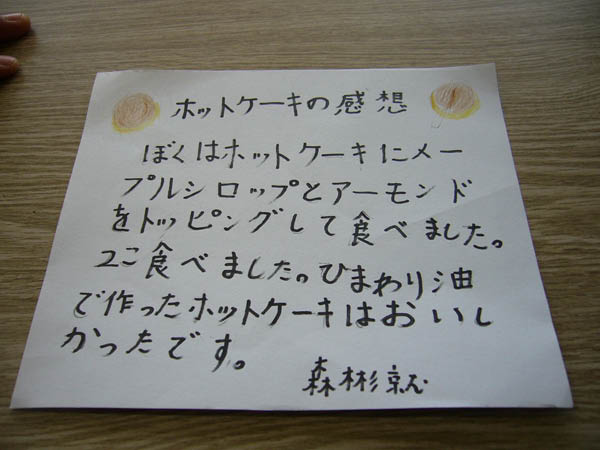 ホットケーキの感想
ぼくはホットケーキにメー
プルシロップとアーモンド
をトッピングして食べました。
2こ食べました。ひまわり油
で作ったホットケーキはおいし
かったです。
森彬